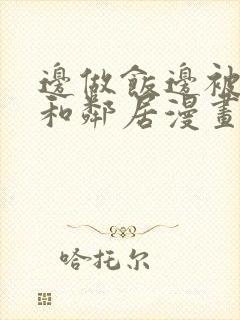 邊做飯邊被
和鄰居漫畫
哈托尔